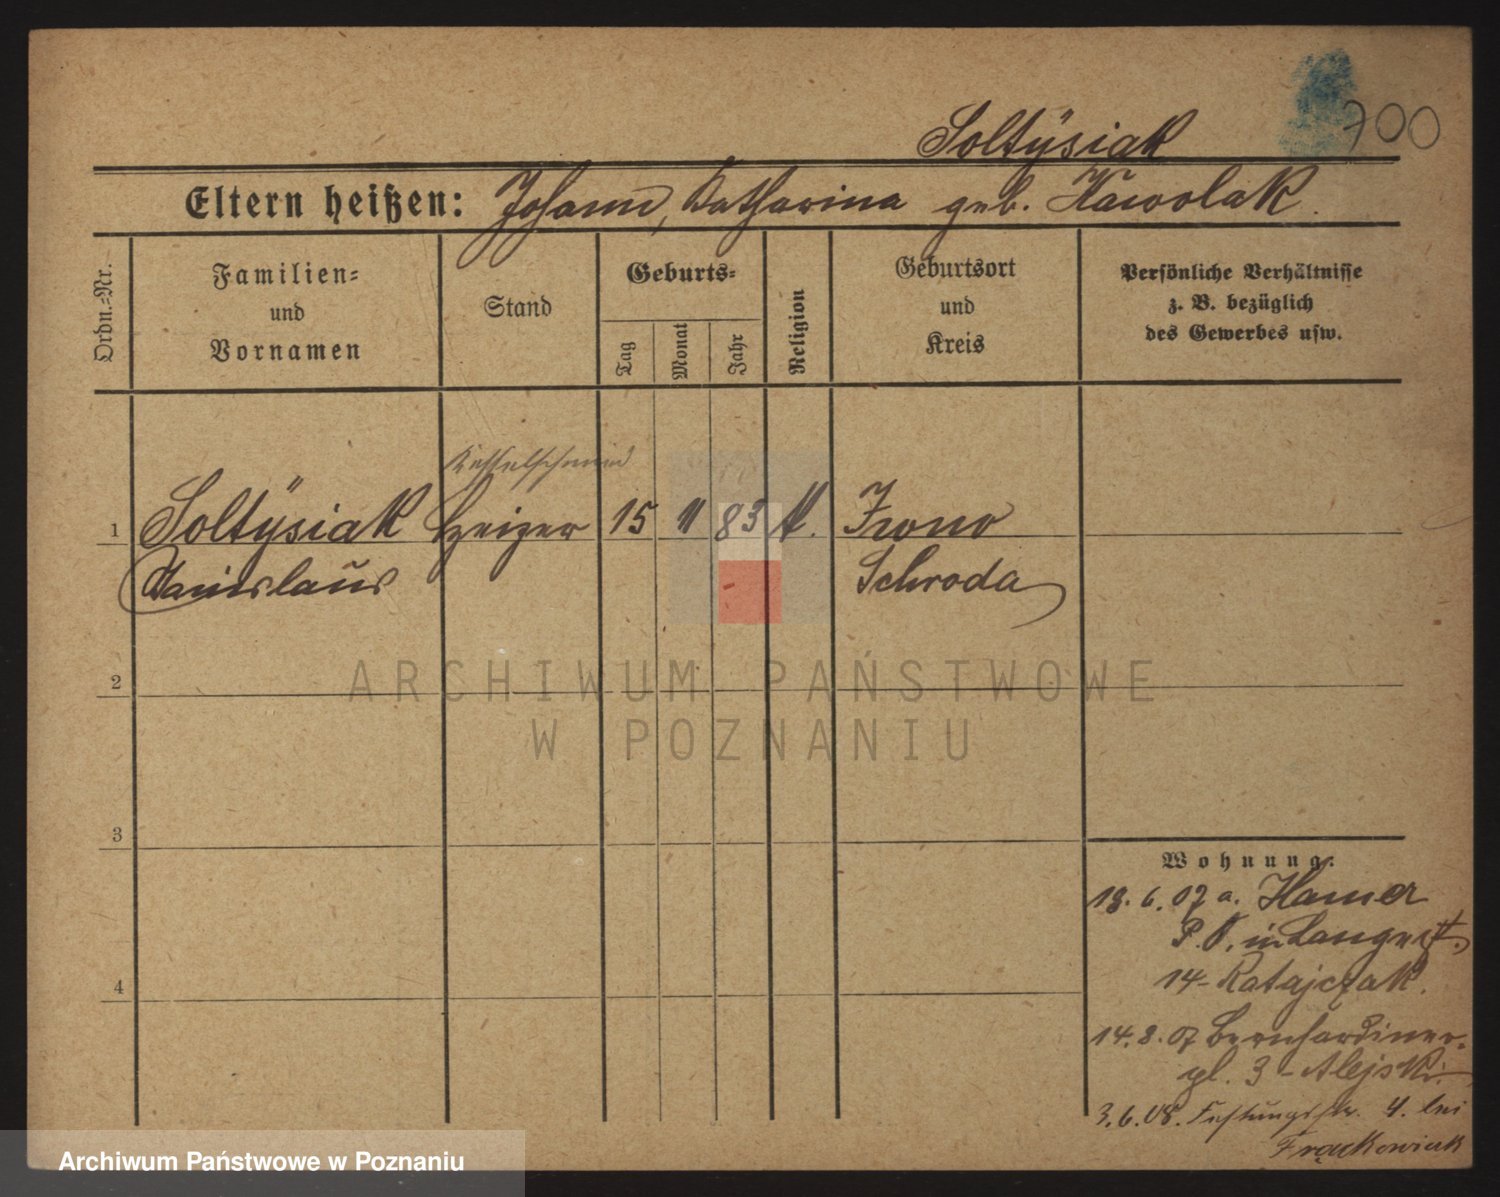 700
Soltÿsiak
Eltern heißen: Johann, Katharina geb. Kawolak.
Ordn.-Nr.
Familien-
und
Vornamen
Stand
Geburts-
Tag
Monat
Jahr
Religion
Geburtsort
und
Kreis
Persönliche Verhältnisse
z. B. bezüglich
des Gewerbes usw.
Kesselschmied
1 Soltÿsiak Heizer 15 11 83 k.
Stanislaus Schroda
2
3
4
Wohnung:
18. 6. 07 a. Hamer
P. K. in Langestr.
14 - Ratajczak.
14. 8. 07 Bernhardiner-
pl. 3 - Alejski.
3. 6. 08. Festungsstr. 4. bei
Frąckowiak
ARCHIWUM PAŃSTWOWE
W POZNANIU
Archiwum Państwowe w Poznaniu